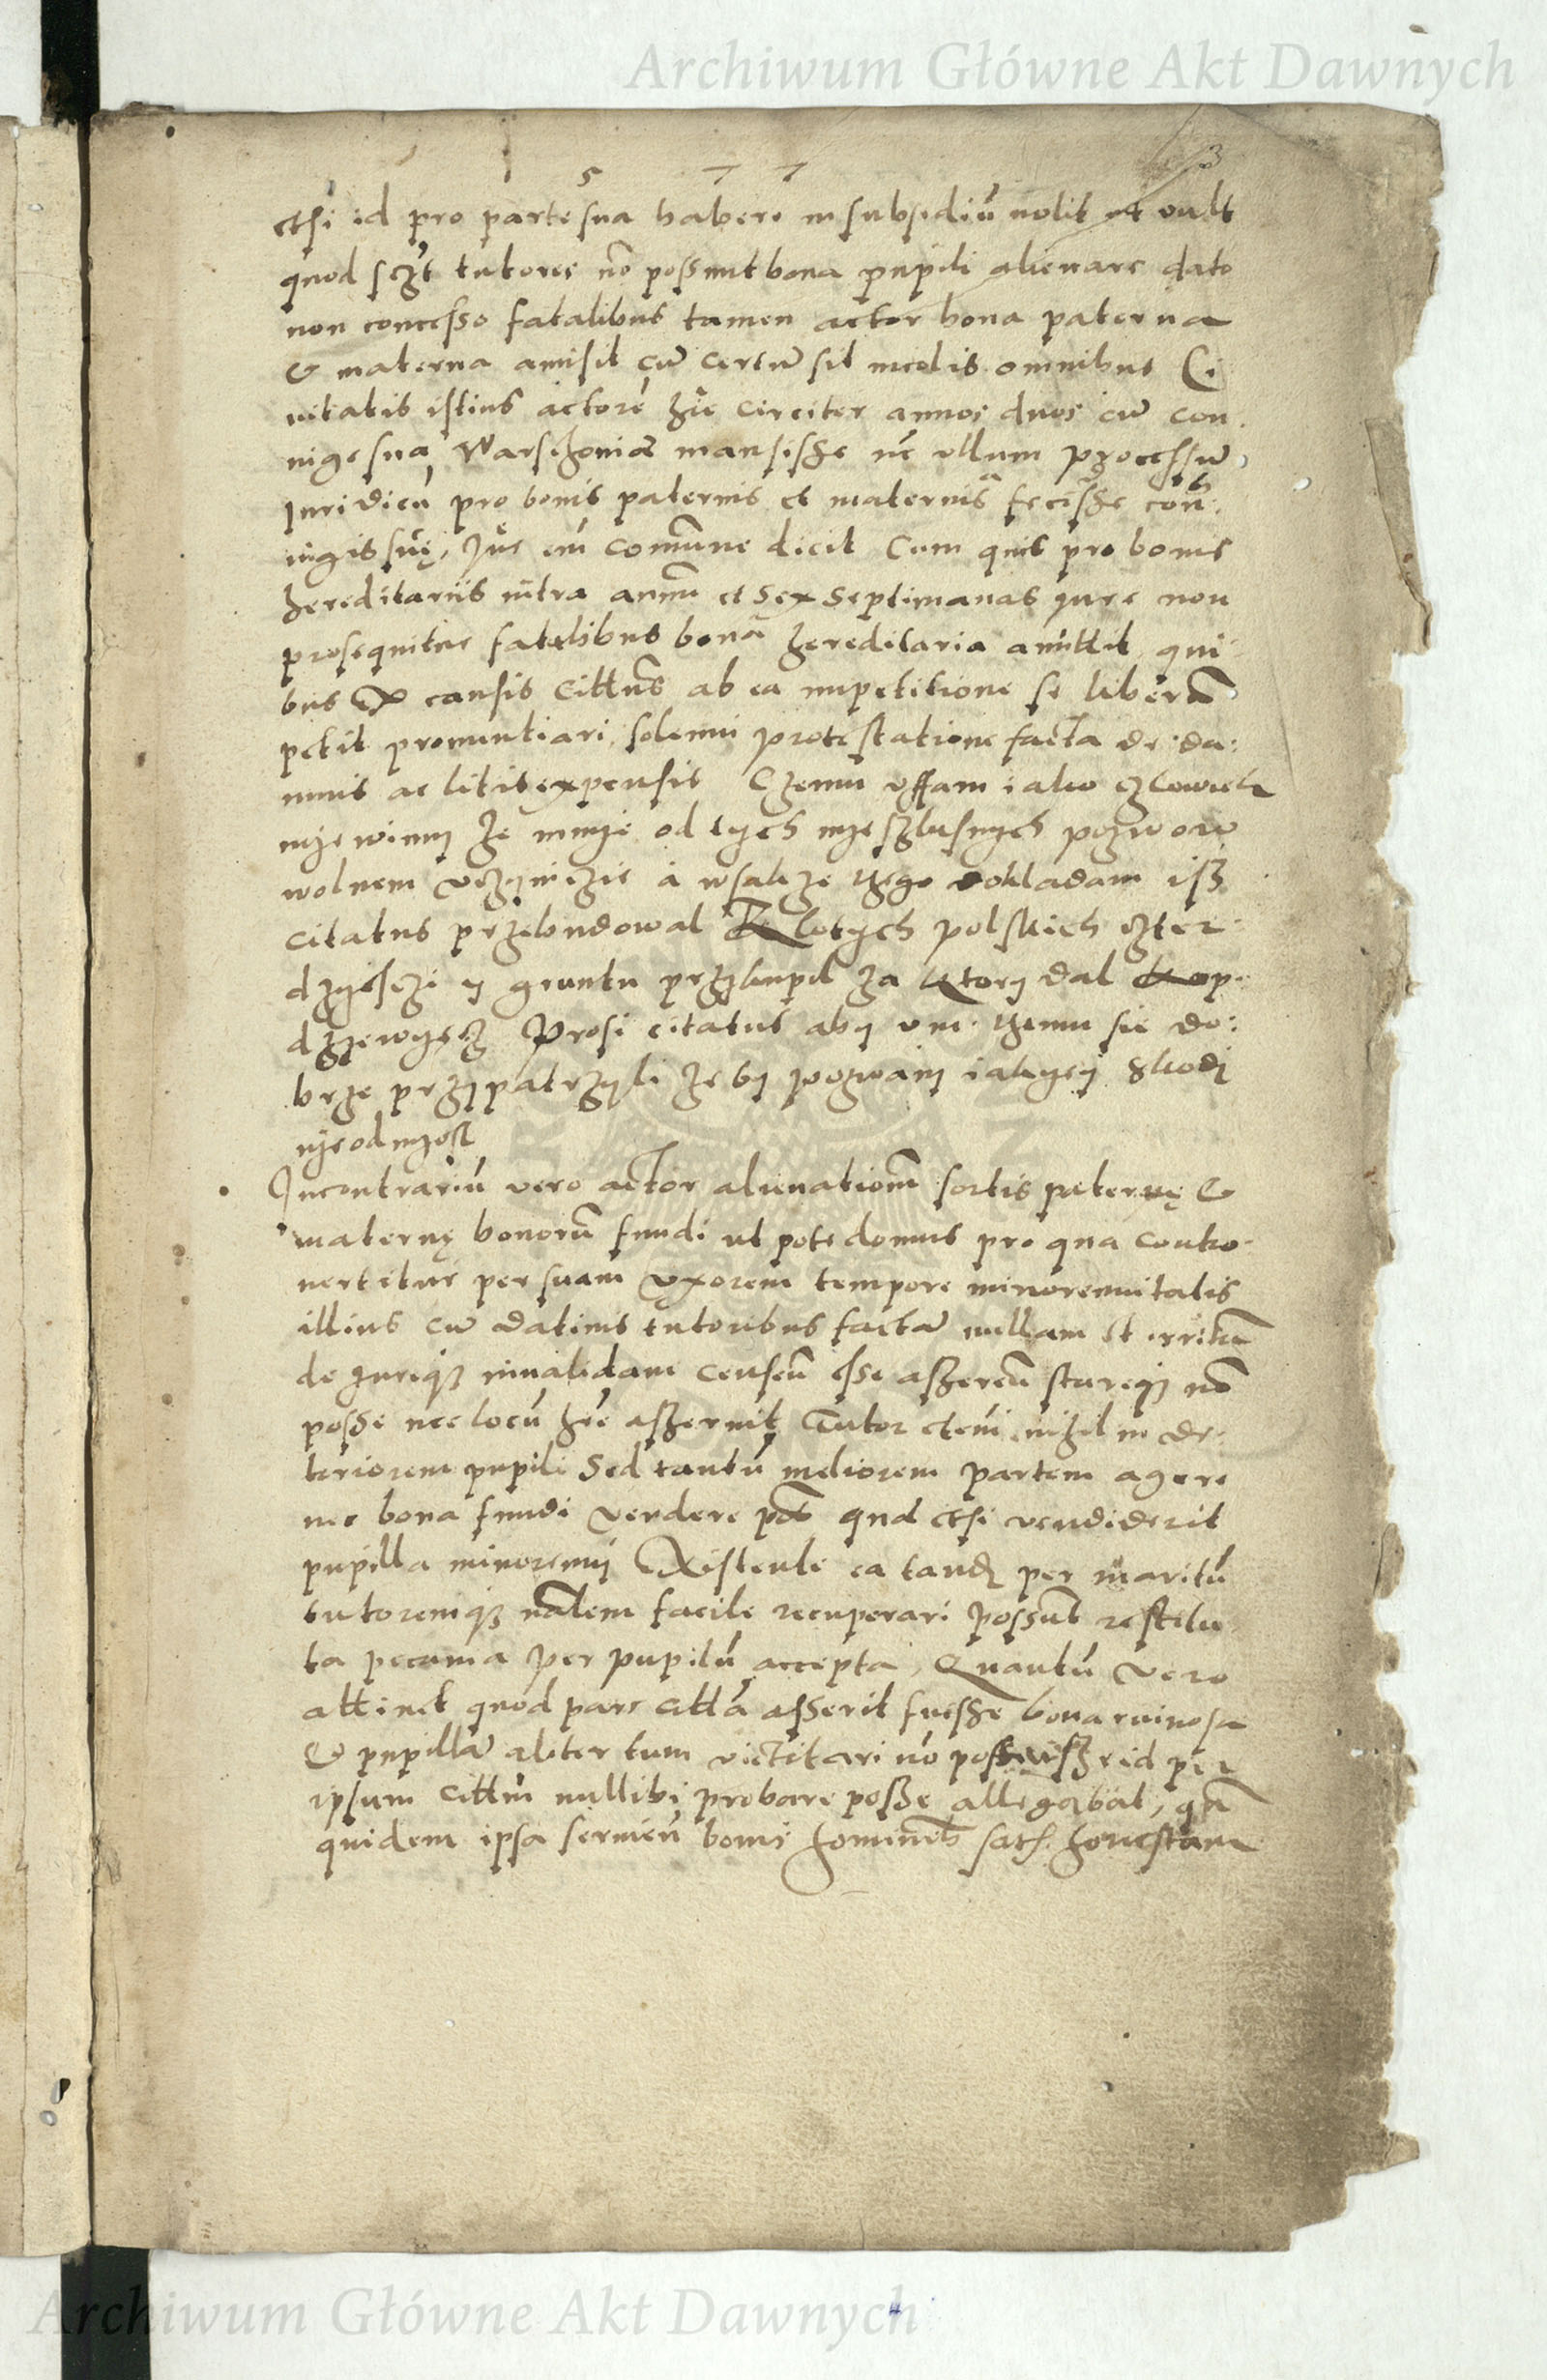 Archiwum Główne Akt Dawnych
5 7 7
3
etsi id pro parte sua haberi in subsidiũ nolit ut vult
quod sczt tutores nõ possint bona pupili alienare dato
non concesso fatalibus tamen actor bona paterna
& materna amisit cũ certũ sit incolis omnibus Ci
vitatis istius actorẽ hic circiter annos duos cũ con
iuge sua Warschoviæ mansisse nec ullum processũ
Juridicũ pro bonis paternis et maternis fecisse con
iugis suę, Jus em comune dicit Cum quis pro bonis
hereditariis intra annũ et sex septimanas jure non
prosequitur fatalibus bona hereditaria amittit, qui
bus ex causis citt9 ab ea impetitione se liberũ
petit pronuntiari, solenni protestatione facta de da:
mnis ac litis expensis Czemu uffam iako człowiek
nyewinny że mnye od tych nyeszlusnych pozwow
wolnem uczynyczie a wsakze tego dokladam isz
citatus przebudował zlotych polskich czter
dzyesczi y gruntu przykupil za ktory dal kop
dzyewyecz Prosi citatus aby vm. temu sie do:
brze przypatrzyli że by pozwany iakyey skody
nye odnyosl
Incontrariũ vero actor alienationem sortis paternę &
maternę bonorũ fundi ut pote domus pro qua contro
vertitur per suam uxorem tempore minorennitatis
illius cũ dativis tutoribus factã nullam et irritã
de jureq3 invalidam censeũ esse assereũ stareq3 nõ
posse nec locũ hre asseruit Tutor etem nihil in de
teriorem pupili Sed tantũ meliorem partem agere
nec bona fundi vendere pot quod etsi vendiderit
pupilla minorenni existente ea tandẽ per maritũ
tutoremq3 nalem facile recuperari possunt restitu
ta pecunia per pupilũ accepta, Quantũ vero
attinet quod pars citta asserit fuisse bona ruinosa
& pupillã aliter tum victitari nõ id per
ipsum cittũ nullibi probare posse allegabat, qñ
quidem ipsa bonis hominib satis honestam
Archiwum Główne Akt Dawnych